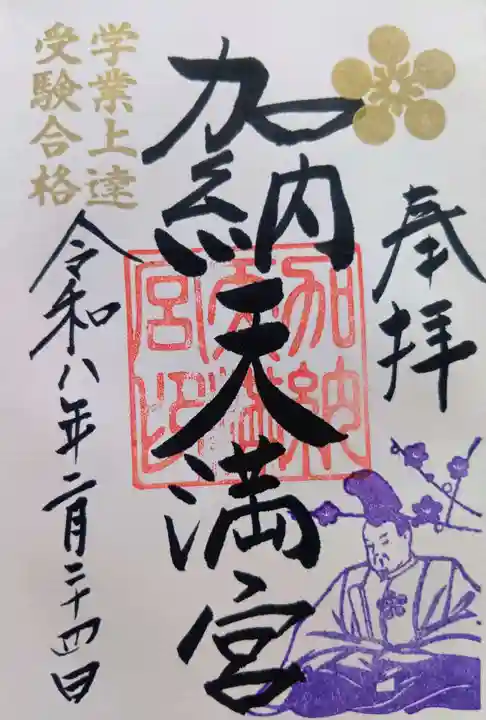 奉拝
加納天満宮
加納
天満
宮印
学業上達
受験合格
令和八年二月二十四日